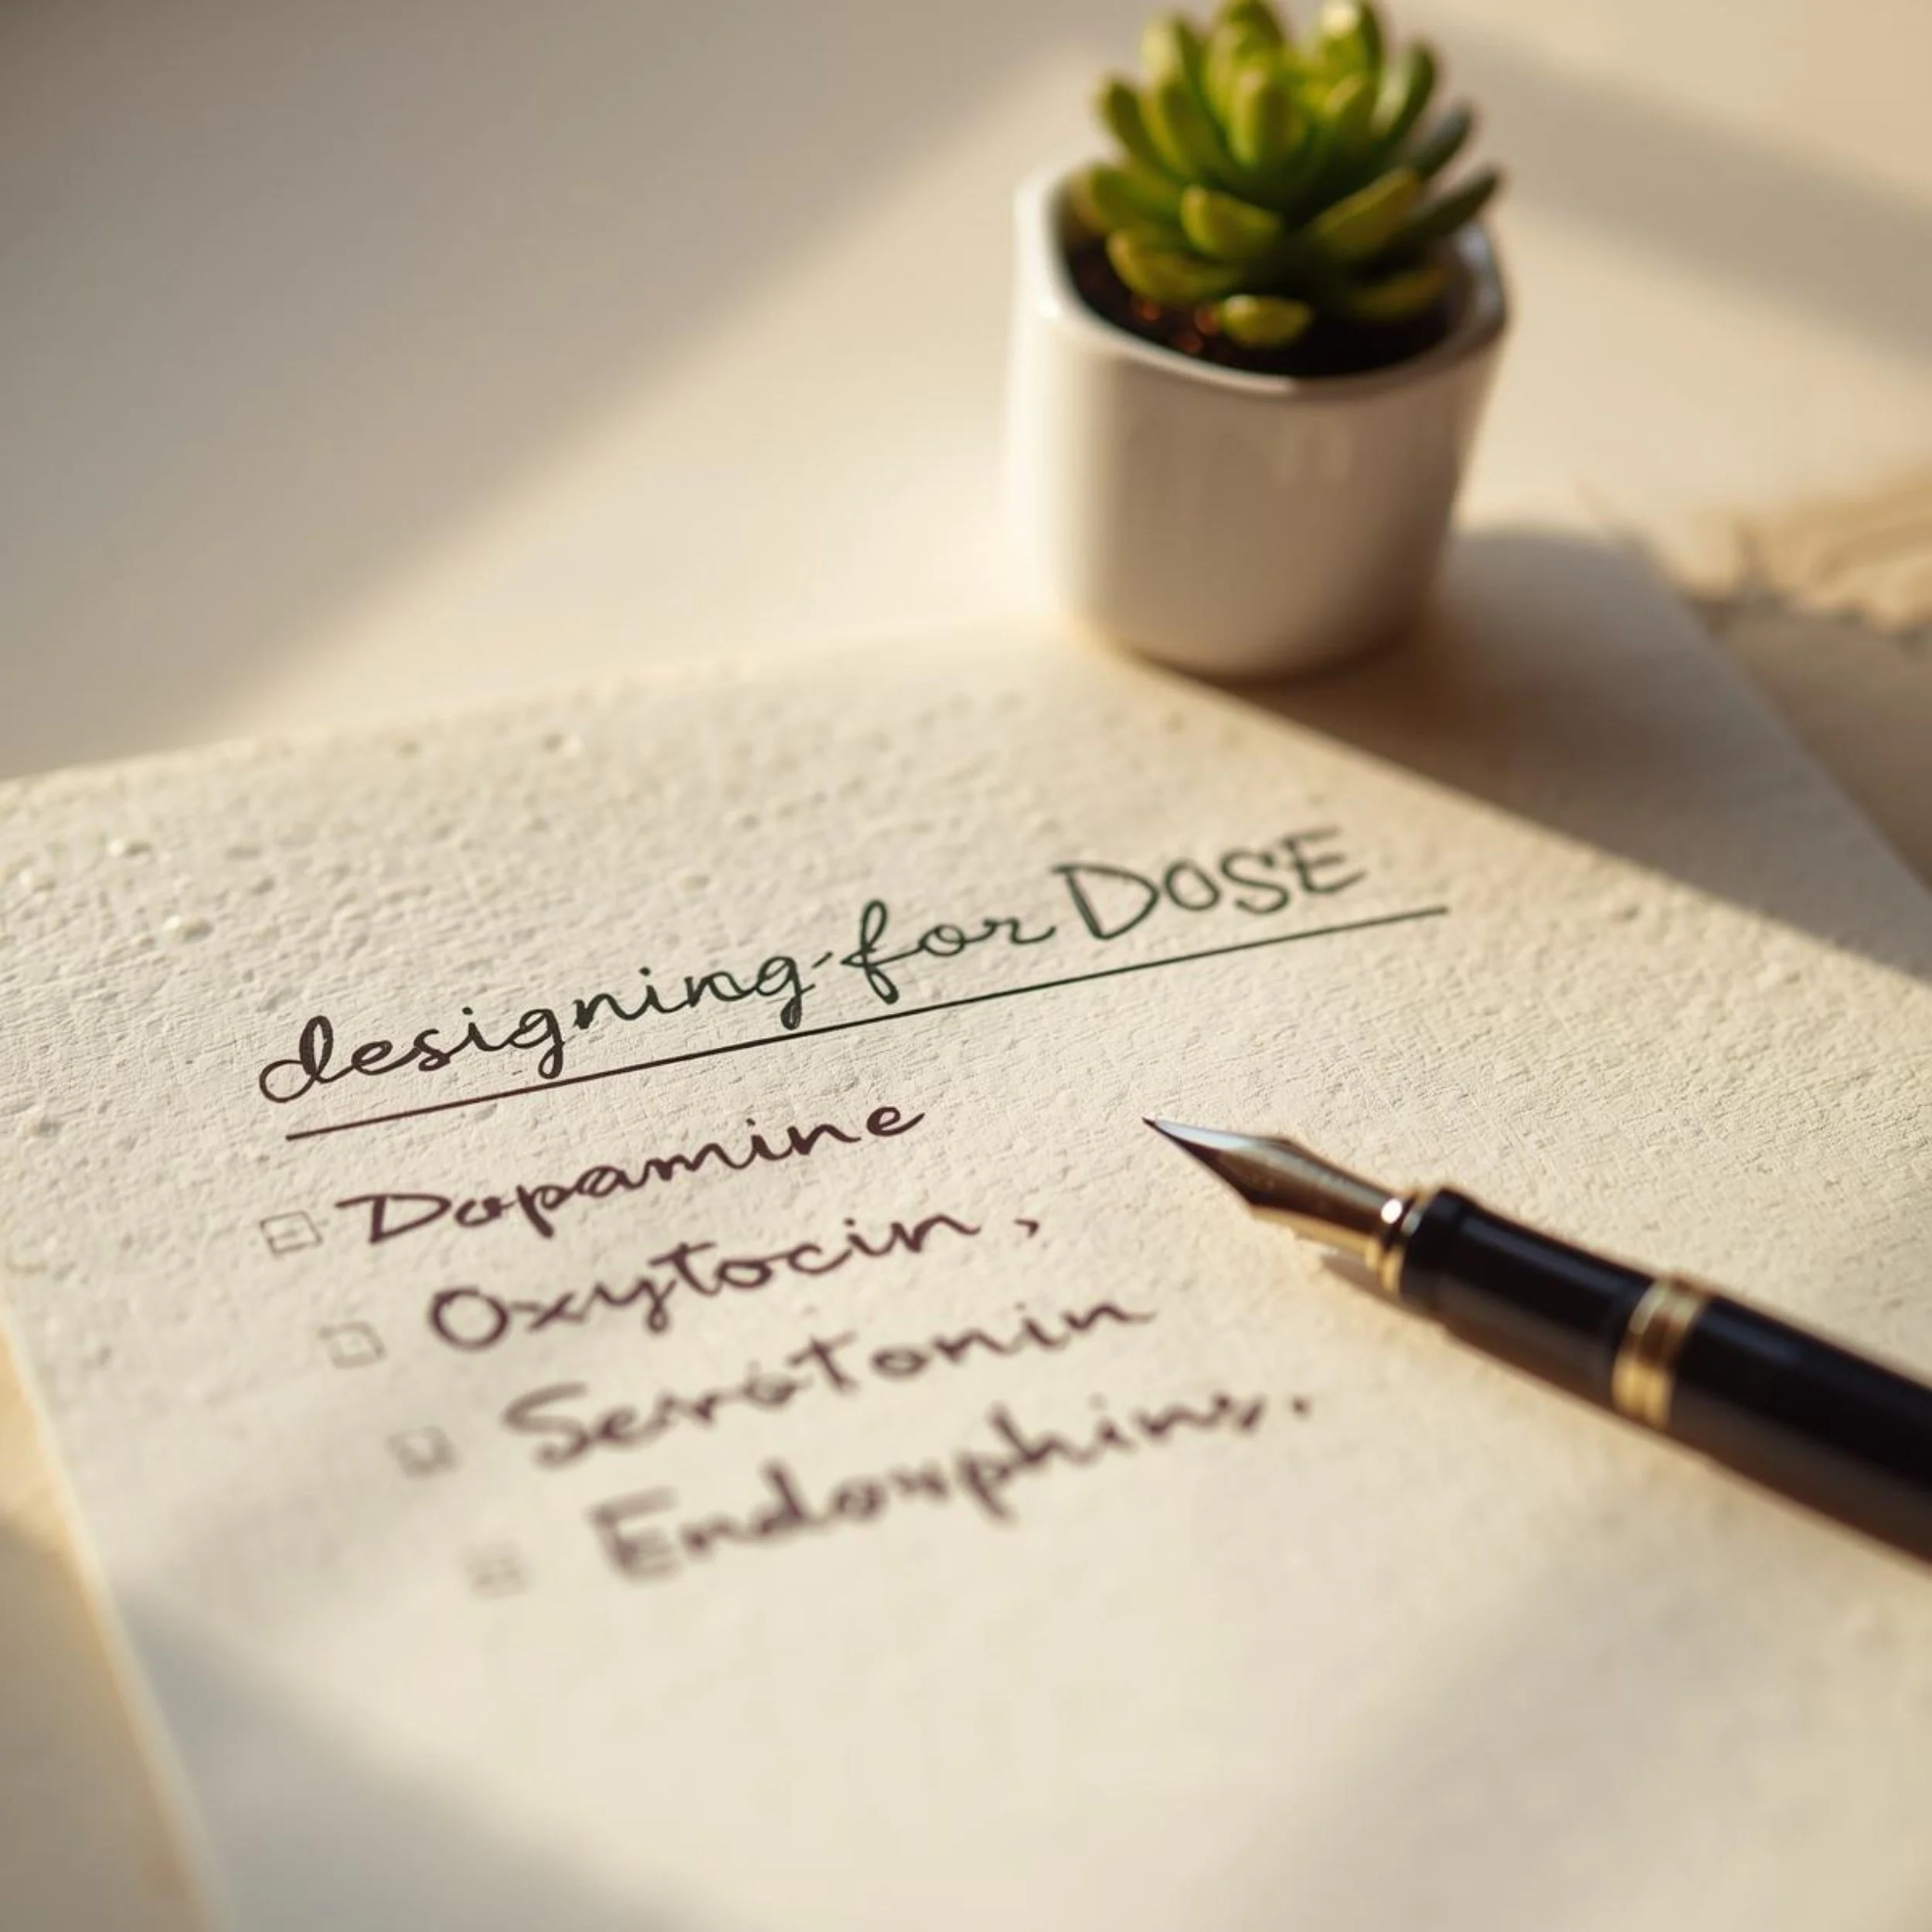 designing for DOSE
Dopamine
Oxytocin,
Serotonin
Endorphins.